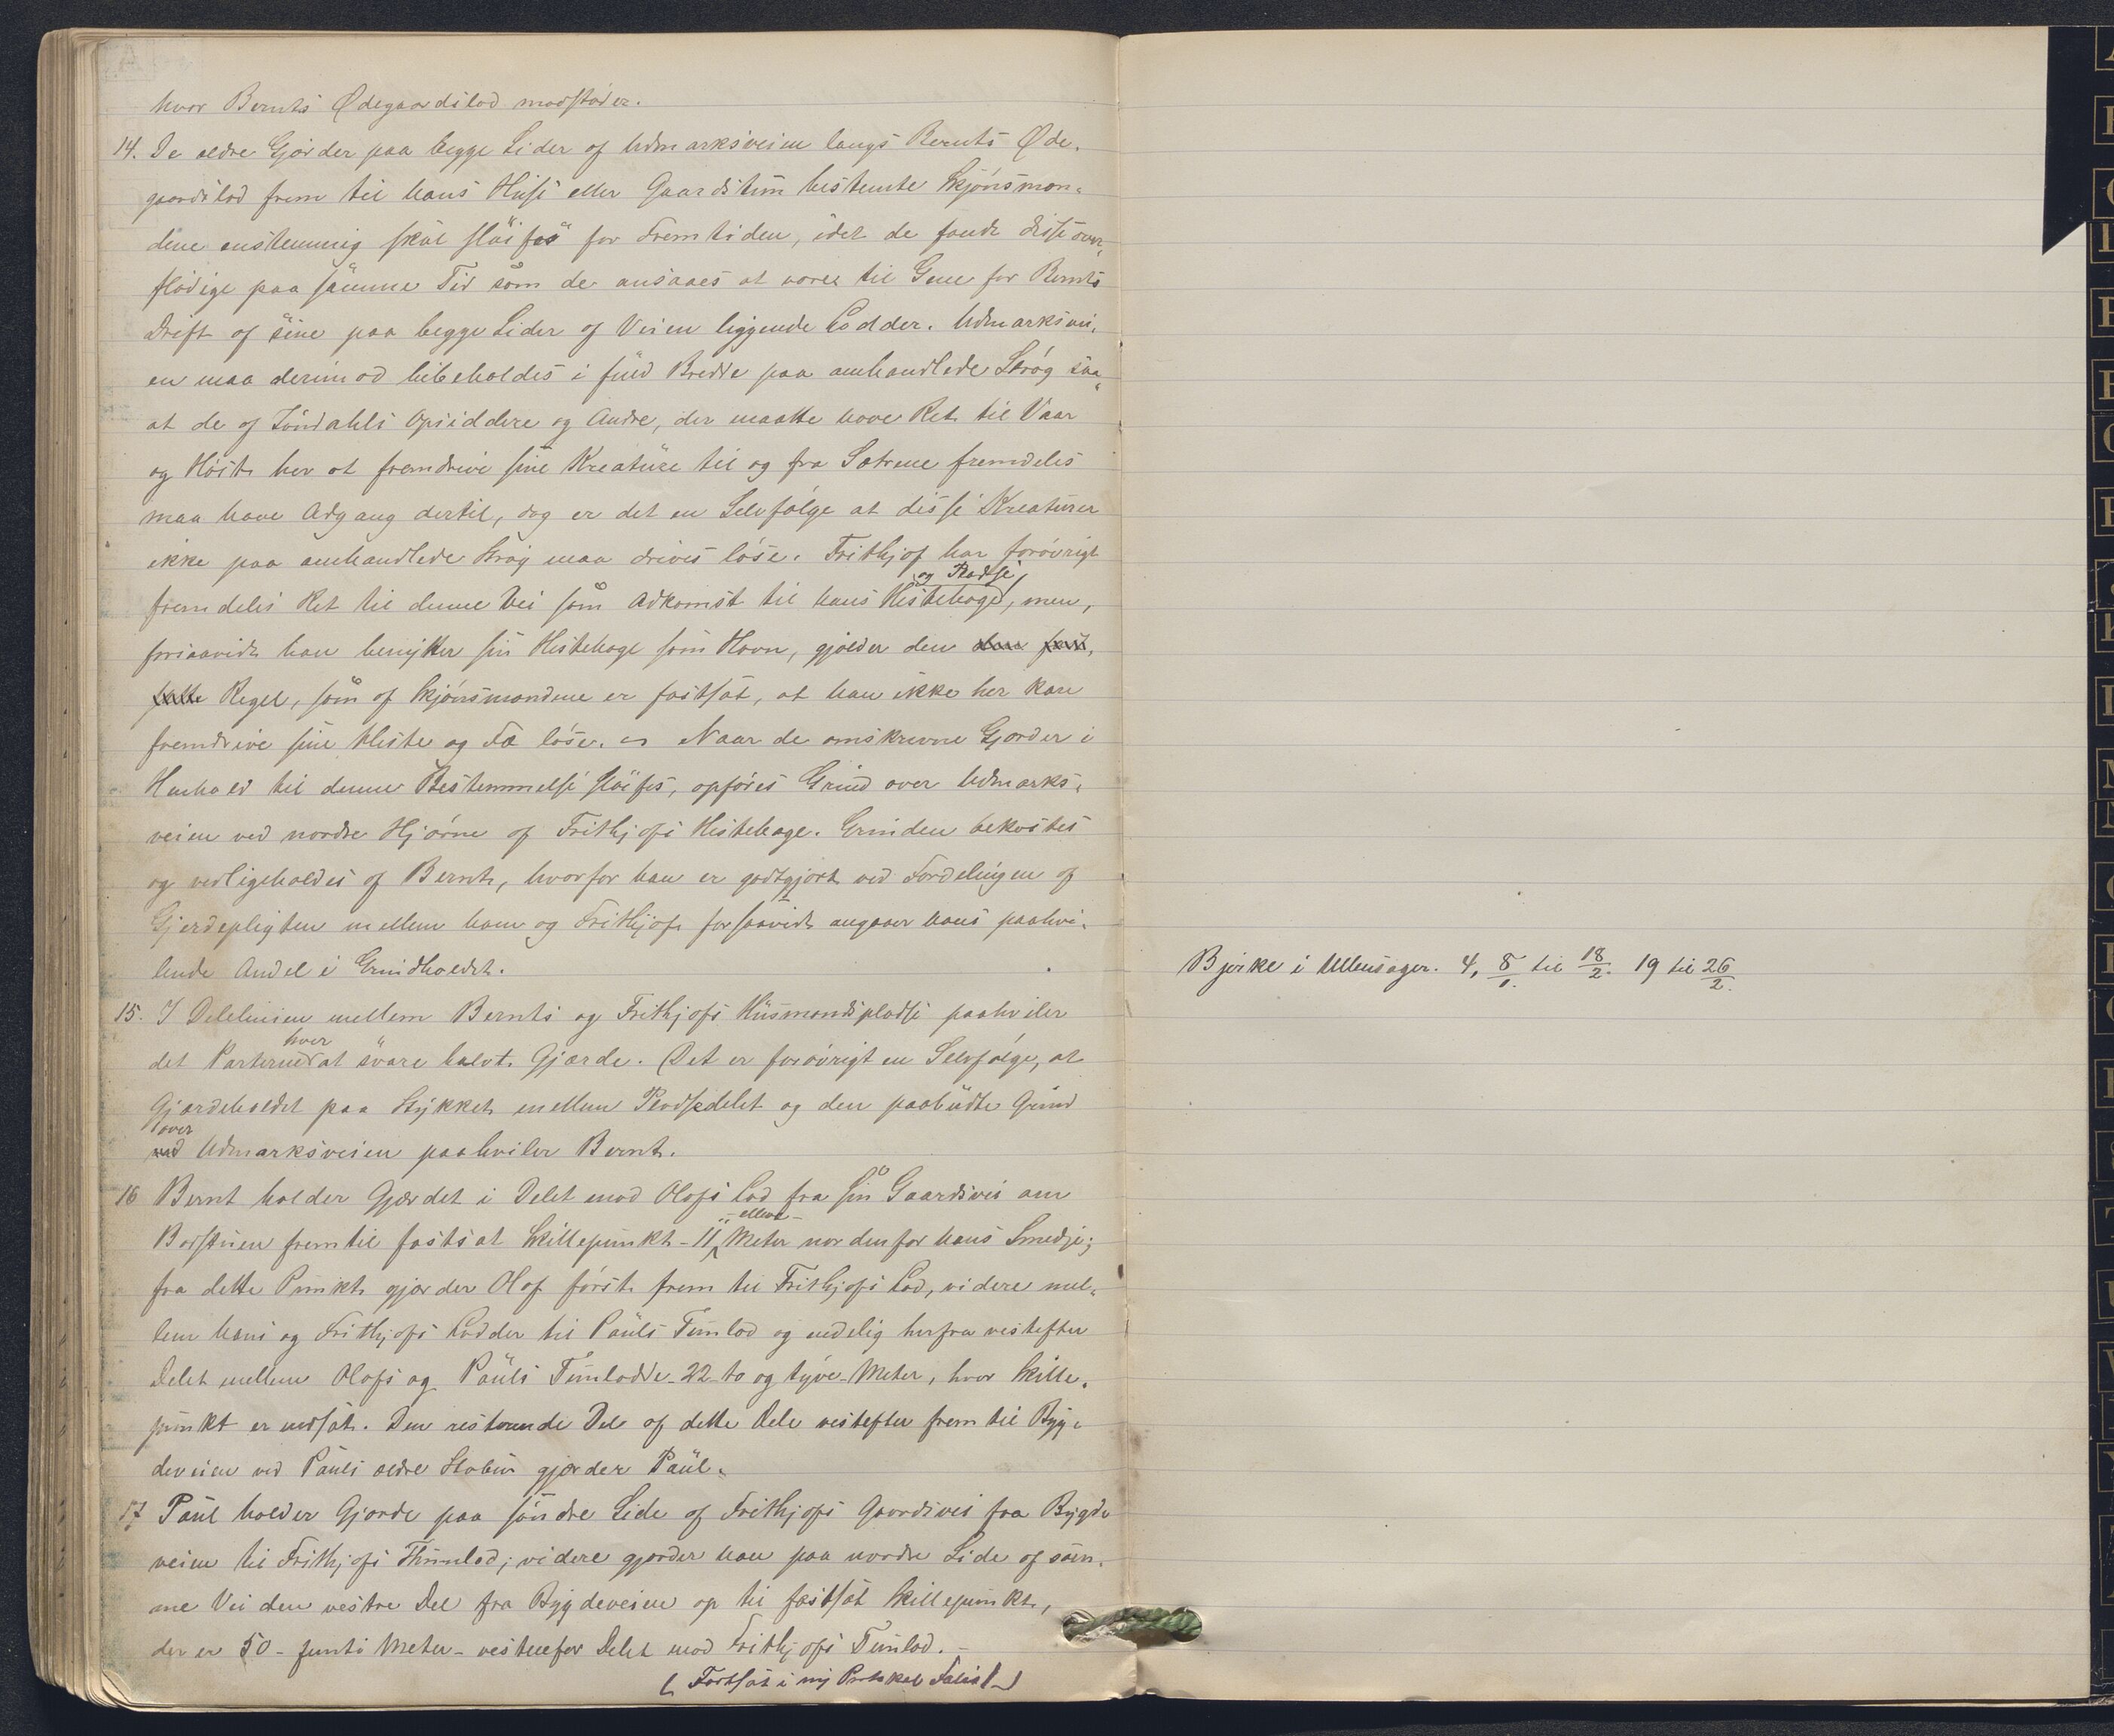 hvor Bernts Ødegaardslod modstöder.
14. De ældre Gjærder paa begge Sider af Udmarksveien langs Bernts Øde-
gaardslod frem til hans Huse eller Gaardstun bestemte Skjönsmæn-
dene enstemmig skal slöifes for Fremtiden, idet de fandt disse over-
flödige paa samme Tid som de ansaaes at være til Gene for Bernts
Drift af sine paa begge Sider af Veien liggende Lodder. Udmarksvei-
en maa derimod bibeholdes i fuld Bredde paa omhandlede Strög saa
at de af Töndahls Opsiddere og Andre, der maatte have Ret til Vaar
og Höst her at fremdrive sine Kreature til og fra Sætrene fremdeles
maa have Adgang dertil, dog er det en Selvfölge at disse Kreaturer
ikke paa omhandlede Strög maa drives löse. Frithjof har forövrigt
fremdeles Ret til denne Vei som Adkomst til hans Hestehage og Pladse, men,
forsaavidt han benytter sin Hestehage som Havn, gjælder den
Regel, som af Skjönsmændene er fastsat, at han ikke her kan
fremdrive sine Heste og Fæ löse. Naar de omskrevne Gjærder i
Henhold til denne Bestemmelse slöifes, opföres Grind over Udmarks-
veien ved nordre Hjörne af Frithjofs Hestehage. Grinden bekostes
og vedligeholdes af Bernt, hvorfor han er godtgjort ved Fordelingen af
Gjerdepligten mellem ham og Frithjof forsaavidt angaaer hans paahvi-
lende Andel i Grindholdet.
15. I Delelinien mellem Bernts og Frithjofs Husmandspladse paahviler
det Parterne hver at svare halvt Gjærde. Det er forövrigt en Selvfölge, at
Gjærdeholdet paa Stykket mellem Pladsedelet og den paabudte Grind
over Udmarksveien paahviler Bernt.
16 Bernt holder Gjærdet i Delet mod Olafs Lod fra sin Gaardsvei om
Borstuen frem til fastsat Skillepunkt - 11 - elleve - Meter nordenfor hans Smedje;
fra dette Punkt gjærder Olaf först frem til Frithjofs Lod, videre mel-
lem hans og Frithjofs Lodder til Pauls Tunlod og endelig herfra vestefter
Delet mellem Olafs og Pauls Tunlodde - 22 - to og tyve - Meter, hvor Skille-
punkt er nedsat. Den resterende Del af dette Dele vestefter frem til Byg-
deveien ved Pauls ældre Stabur gjærder Paul.
17 Paul holder Gjærde paa söndre Side af Frithjofs Gaardsvei fra Bygde
veien til Frithjofs Thunlod; videre gjærder han paa nordre Side af sam-
me Vei den vestre Del fra Bygdeveien op til fastsat Skillepunkt,
der er 50 - femti Meter - vestenfor Delet mod Frithjofs Tunlod. -
(Fortsat i ny Protokol Folio 1)
Bjerke i Ullensager. 4, 8/1. til 18/2. 19 til 26/2.